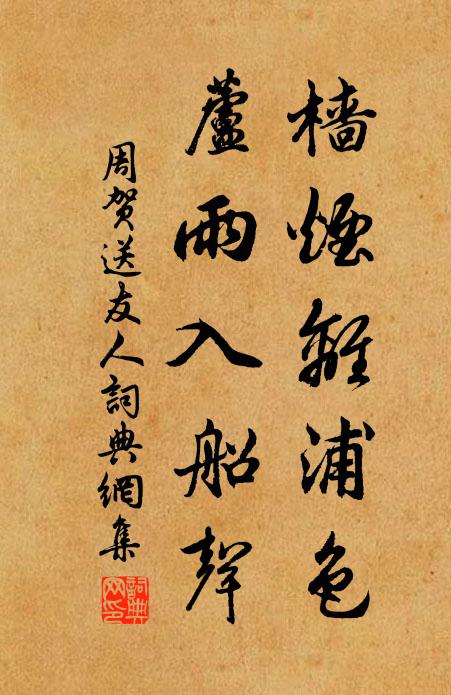 檣煙離浦色
蘆雨入船聲
周賀送友人詞典網集
詞典網印